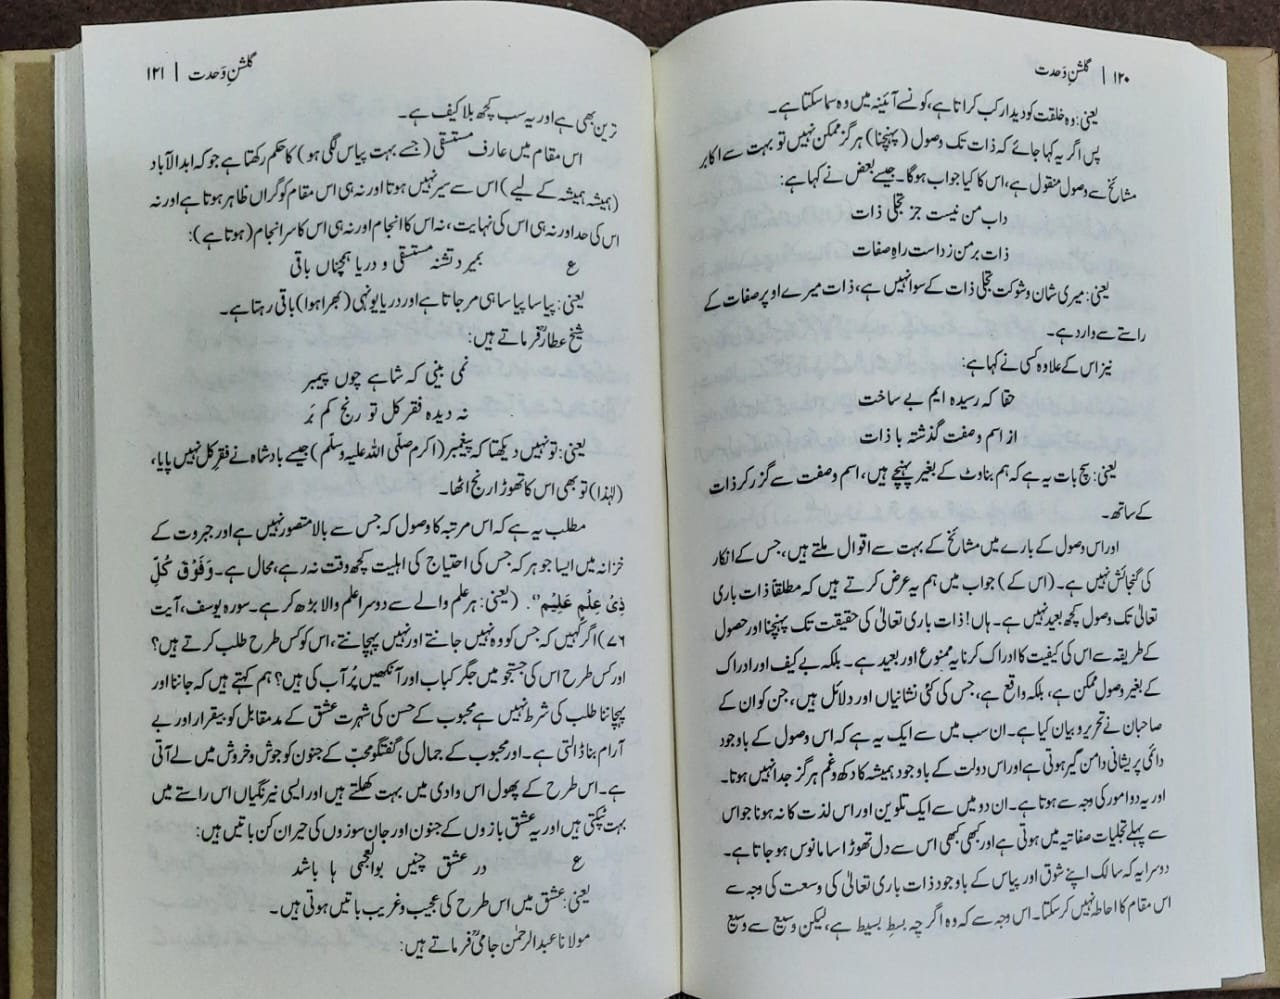 ۱۲۰ | گلشنِ وَحدت
یعنی: وہ خلقت کو دیدار کب کراتا ہے، کونسے آئینہ میں وہ سما سکتا ہے۔
پس اگر یہ کہا جائے کہ ذات تک وصول (پہنچنا) ہرگز ممکن نہیں تو بہت سے اکابر
مشائخ سے وصول منقول ہے، اس کا کیا جواب ہوگا۔ جیسے بعض نے کہا ہے:
داب من نیست جز تجلی ذات
ذات بر من زداست راہِ صفات
یعنی: میری شان و شوکت تجلی ذات کے سوا نہیں ہے، ذات میرے اوپر صفات کے
راستے سے وارد ہے۔
نیز اس کے علاوہ کسی نے کہا ہے:
حقا کہ رسیدہ ایم بے ساخت
از اسم وصفت گذشتہ با ذات
یعنی: سچ بات یہ ہے کہ ہم بناوٹ کے بغیر پہنچے ہیں، اسم وصفت سے گزر کر ذات
کے ساتھ۔
اور اس وصول کے بارے میں مشائخ کے بہت سے اقوال ملتے ہیں، جس کے انکار
کی گنجائش نہیں ہے۔ (اس کے) جواب میں ہم یہ عرض کرتے ہیں کہ مطلقاً ذات باری
تعالیٰ تک وصول کچھ بعید نہیں ہے۔ ہاں! ذات باری تعالیٰ کی حقیقت تک پہنچنا اور حصول
کے طریقہ سے اس کی کیفیت کا ادراک کرنا یہ ممنوع اور بعید ہے۔ بلکہ بے کیف اور ادراک
کے بغیر وصول ممکن ہے، بلکہ واقع ہے، جس کی کئی نشانیاں اور دلائل ہیں، جن کو ان کے
صاحبان نے تحریر و بیان کیا ہے۔ ان سب میں سے ایک یہ ہے کہ اس وصول کے باوجود
دائمی پریشانی دامن گیر ہوتی ہے اور اس دولت کے باوجود ہمیشہ کا دکھ و غم ہرگز جدا نہیں ہوتا۔
اور یہ دو امور کی وجہ سے ہوتا ہے۔ ان دو میں سے ایک تلوین اور اس لذت کا نہ ہونا جو اس
سے پہلے تجلیات صفاتیہ میں ہوتی ہے اور کبھی کبھی اس سے دل تھوڑا سا مانوس ہو جاتا ہے۔
دوسرا یہ کہ سالک اپنے شوق اور پیاس کے باوجود ذات باری تعالیٰ کی وسعت کی وجہ سے
اس مقام کا احاطہ نہیں کر سکتا۔ اس وجہ سے کہ وہ اگرچہ بسطِ بسیط ہے، لیکن وسیع سے وسیع
گلشنِ وَحدت | ۱۲۱
ترین بھی ہے اور یہ سب کچھ بلا کیف ہے۔
اس مقام میں عارف مستسقی (جسے بہت پیاس لگی ہو) کا حکم رکھتا ہے جو کہ ابد الآباد
(ہمیشہ ہمیشہ کے لیے) اس سے سیر نہیں ہوتا اور نہ ہی اس مقام کو گراں ظاہر ہوتا ہے اور نہ
اس کی حد اور نہ ہی اس کی نہایت، نہ اس کا انجام اور نہ ہی اس کا سر انجام (ہوتا ہے):
ع بمیرد تشنہ مستسقی و دریا ہمچناں باقی
یعنی: پیاسا پیاسا ہی مر جاتا ہے اور دریا یونہی (بھرا ہوا) باقی رہتا ہے۔
شیخ عطارؒ فرماتے ہیں:
نمی بینی کہ شاہے چوں پیمبر
نہ دیدہ فقر کل تو رنج کم بَر
یعنی: تو نہیں دیکھتا کہ پیغمبر (اکرم صلّی اللہ علیہ وسلّم) جیسے بادشاہ نے فقرِ کل نہیں پایا،
(لہٰذا) تو بھی اس کا تھوڑا رنج اٹھا۔
مطلب یہ ہے کہ اس مرتبہ کا وصول کہ جس سے بالا متصور نہیں ہے اور جبروت کے
خزانہ میں ایسا جوہر کہ جس کی احتیاج کی اہلیت کچھ وقت نہ رہے، محال ہے۔ وَفَوْقَ كُلِّ
ذِیْ عِلْمٍ عَلِیْمٌ“۔ (یعنی: ہر علم والے سے دوسرا علم والا بڑھ کر ہے۔ سورہ یوسف، آیت
۷۶) اگر کہیں کہ جس کو وہ نہیں جانتے اور نہیں پہچانتے، اس کو کس طرح طلب کرتے ہیں؟
اور کس طرح اس کی جستجو میں جگر کباب اور آنکھیں پُر آب کی ہیں؟ ہم کہتے ہیں کہ جاننا اور
پہچاننا طلب کی شرط نہیں ہے محبوب کے حسن کی شہرت عشق کے مد مقابل کو بیقرار اور بے
آرام بنا ڈالتی ہے۔ اور محبوب کے جمال کی گفتگو محبت کے جنون کو جوش و خروش میں لے آتی
ہے۔ اس طرح کے پھول اس وادی میں بہت کھلتے ہیں اور ایسی نیرنگیاں اس راستے میں
بہت ٹپکتی ہیں اور یہ عشق بازوں کے جنون اور جان سوزوں کی حیران کن باتیں ہیں:
ع در عشق چنیں بوالعجبی ہا باشد
یعنی: عشق میں اس طرح کی عجیب و غریب باتیں ہوتی ہیں۔
مولانا عبدالرحمٰن جامیؒ فرماتے ہیں: